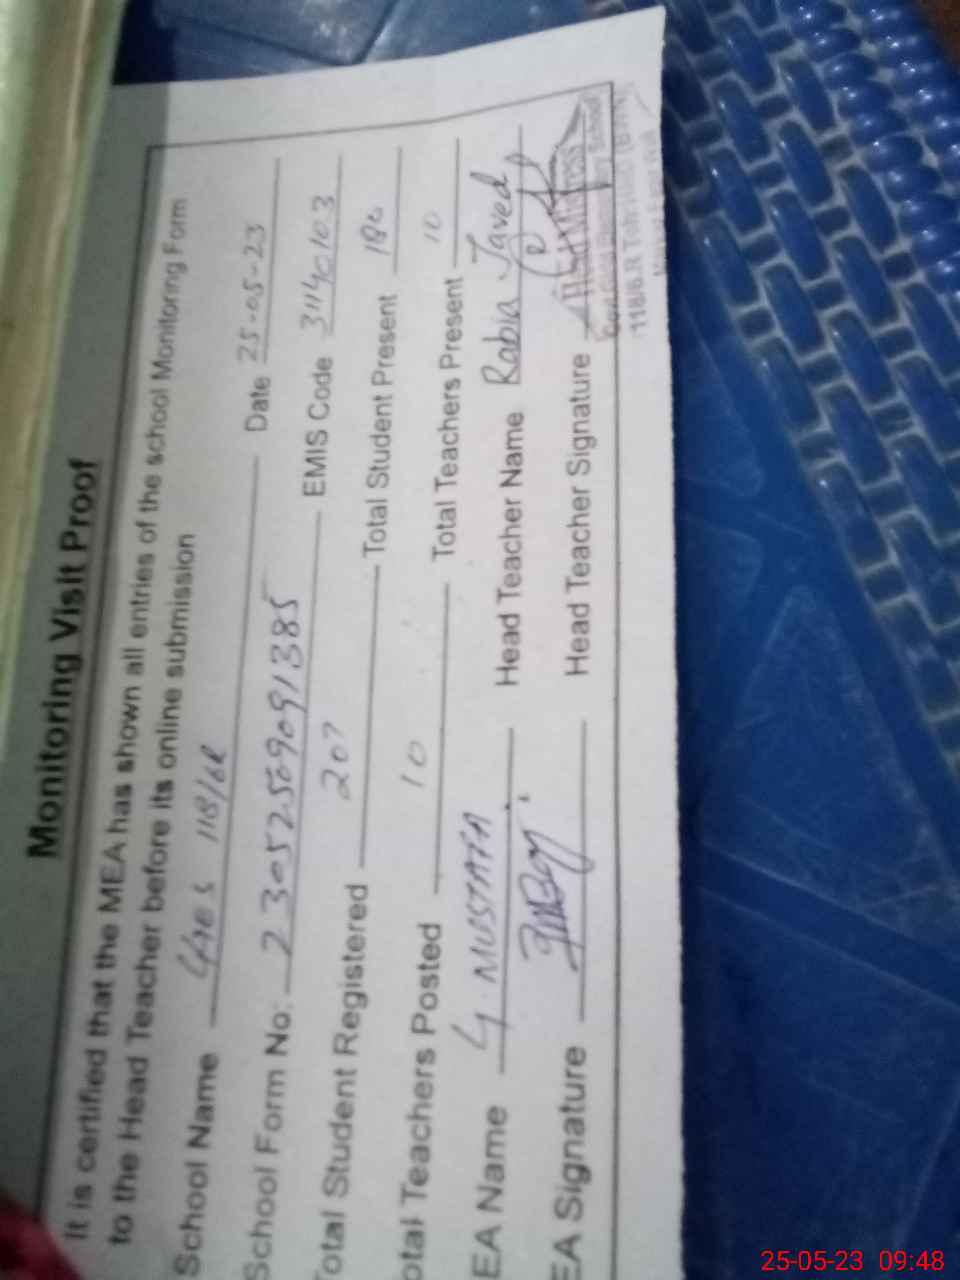 Monitoring Visit Proof
It is certified that the MEA has shown all entries of the school Monitoring Form
to the Head Teacher before its online submission
School Name GES 118/6R Date 25-05-23
School Form No: 23052569091385 EMIS Code 31140103
otal Student Registered 207 Total Student Present 180
otal Teachers Posted 10 Total Teachers Present 10
EA Name G. MUSTAFA Head Teacher Name Rabia Javed
EA Signature Head Teacher Signature
Headmistress
118/6.R
25-05-23 09:48